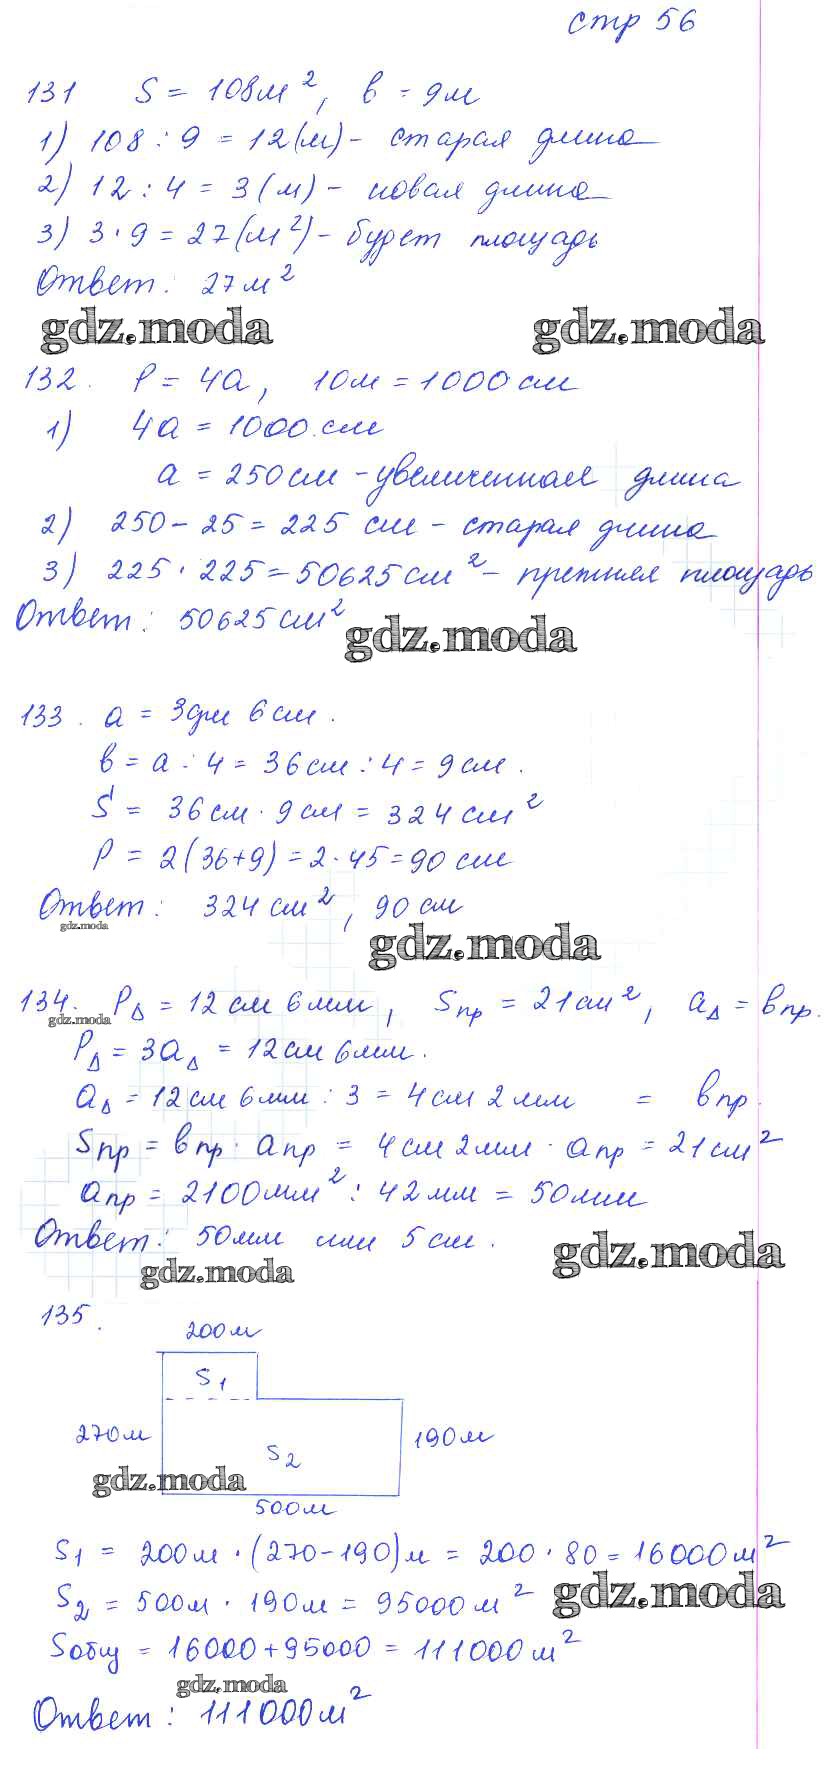 стр 56
131 S = 108м², в = 9м
1) 108 : 9 = 12(м) - старая длина
2) 12 : 4 = 3(м) - новая длина
3) 3 · 9 = 27(м²) - будет площадь
Ответ: 27м²
gdz.moda gdz.moda
132. P = 4a, 10м = 1000см
1) 4a = 1000.см
a = 250см - увеличенная длина
2) 250 - 25 = 225 см - старая длина
3) 225 · 225 = 50625см² - прежняя площадь
Ответ: 50625см²
gdz.moda
133. a = 3дм 6см.
в = a : 4 = 36см : 4 = 9см.
S = 36см · 9см = 324см²
P = 2(36+9) = 2·45 = 90см
Ответ: 324см², 90см
gdz.moda
gdz.moda
134. PΔ = 12см 6мм, Sпр = 21см², aΔ = впр.
gdz.moda
PΔ = 3aΔ = 12см 6мм.
aΔ = 12см 6мм : 3 = 4см 2мм = впр.
Sпр = впр · aпр = 4см 2мм · aпр = 21см²
aпр = 2100мм² : 42мм = 50мм
Ответ: 50мм или 5см.
gdz.moda
gdz.moda
135.
200м
S₁
270м
190м
S₂
gdz.moda
500м
S₁ = 200м · (270-190)м = 200 · 80 = 16000м²
S₂ = 500м · 190м = 95000м²
gdz.moda
Sобщ = 16000 + 95000 = 111000м²
gdz.moda
Ответ: 111000м²